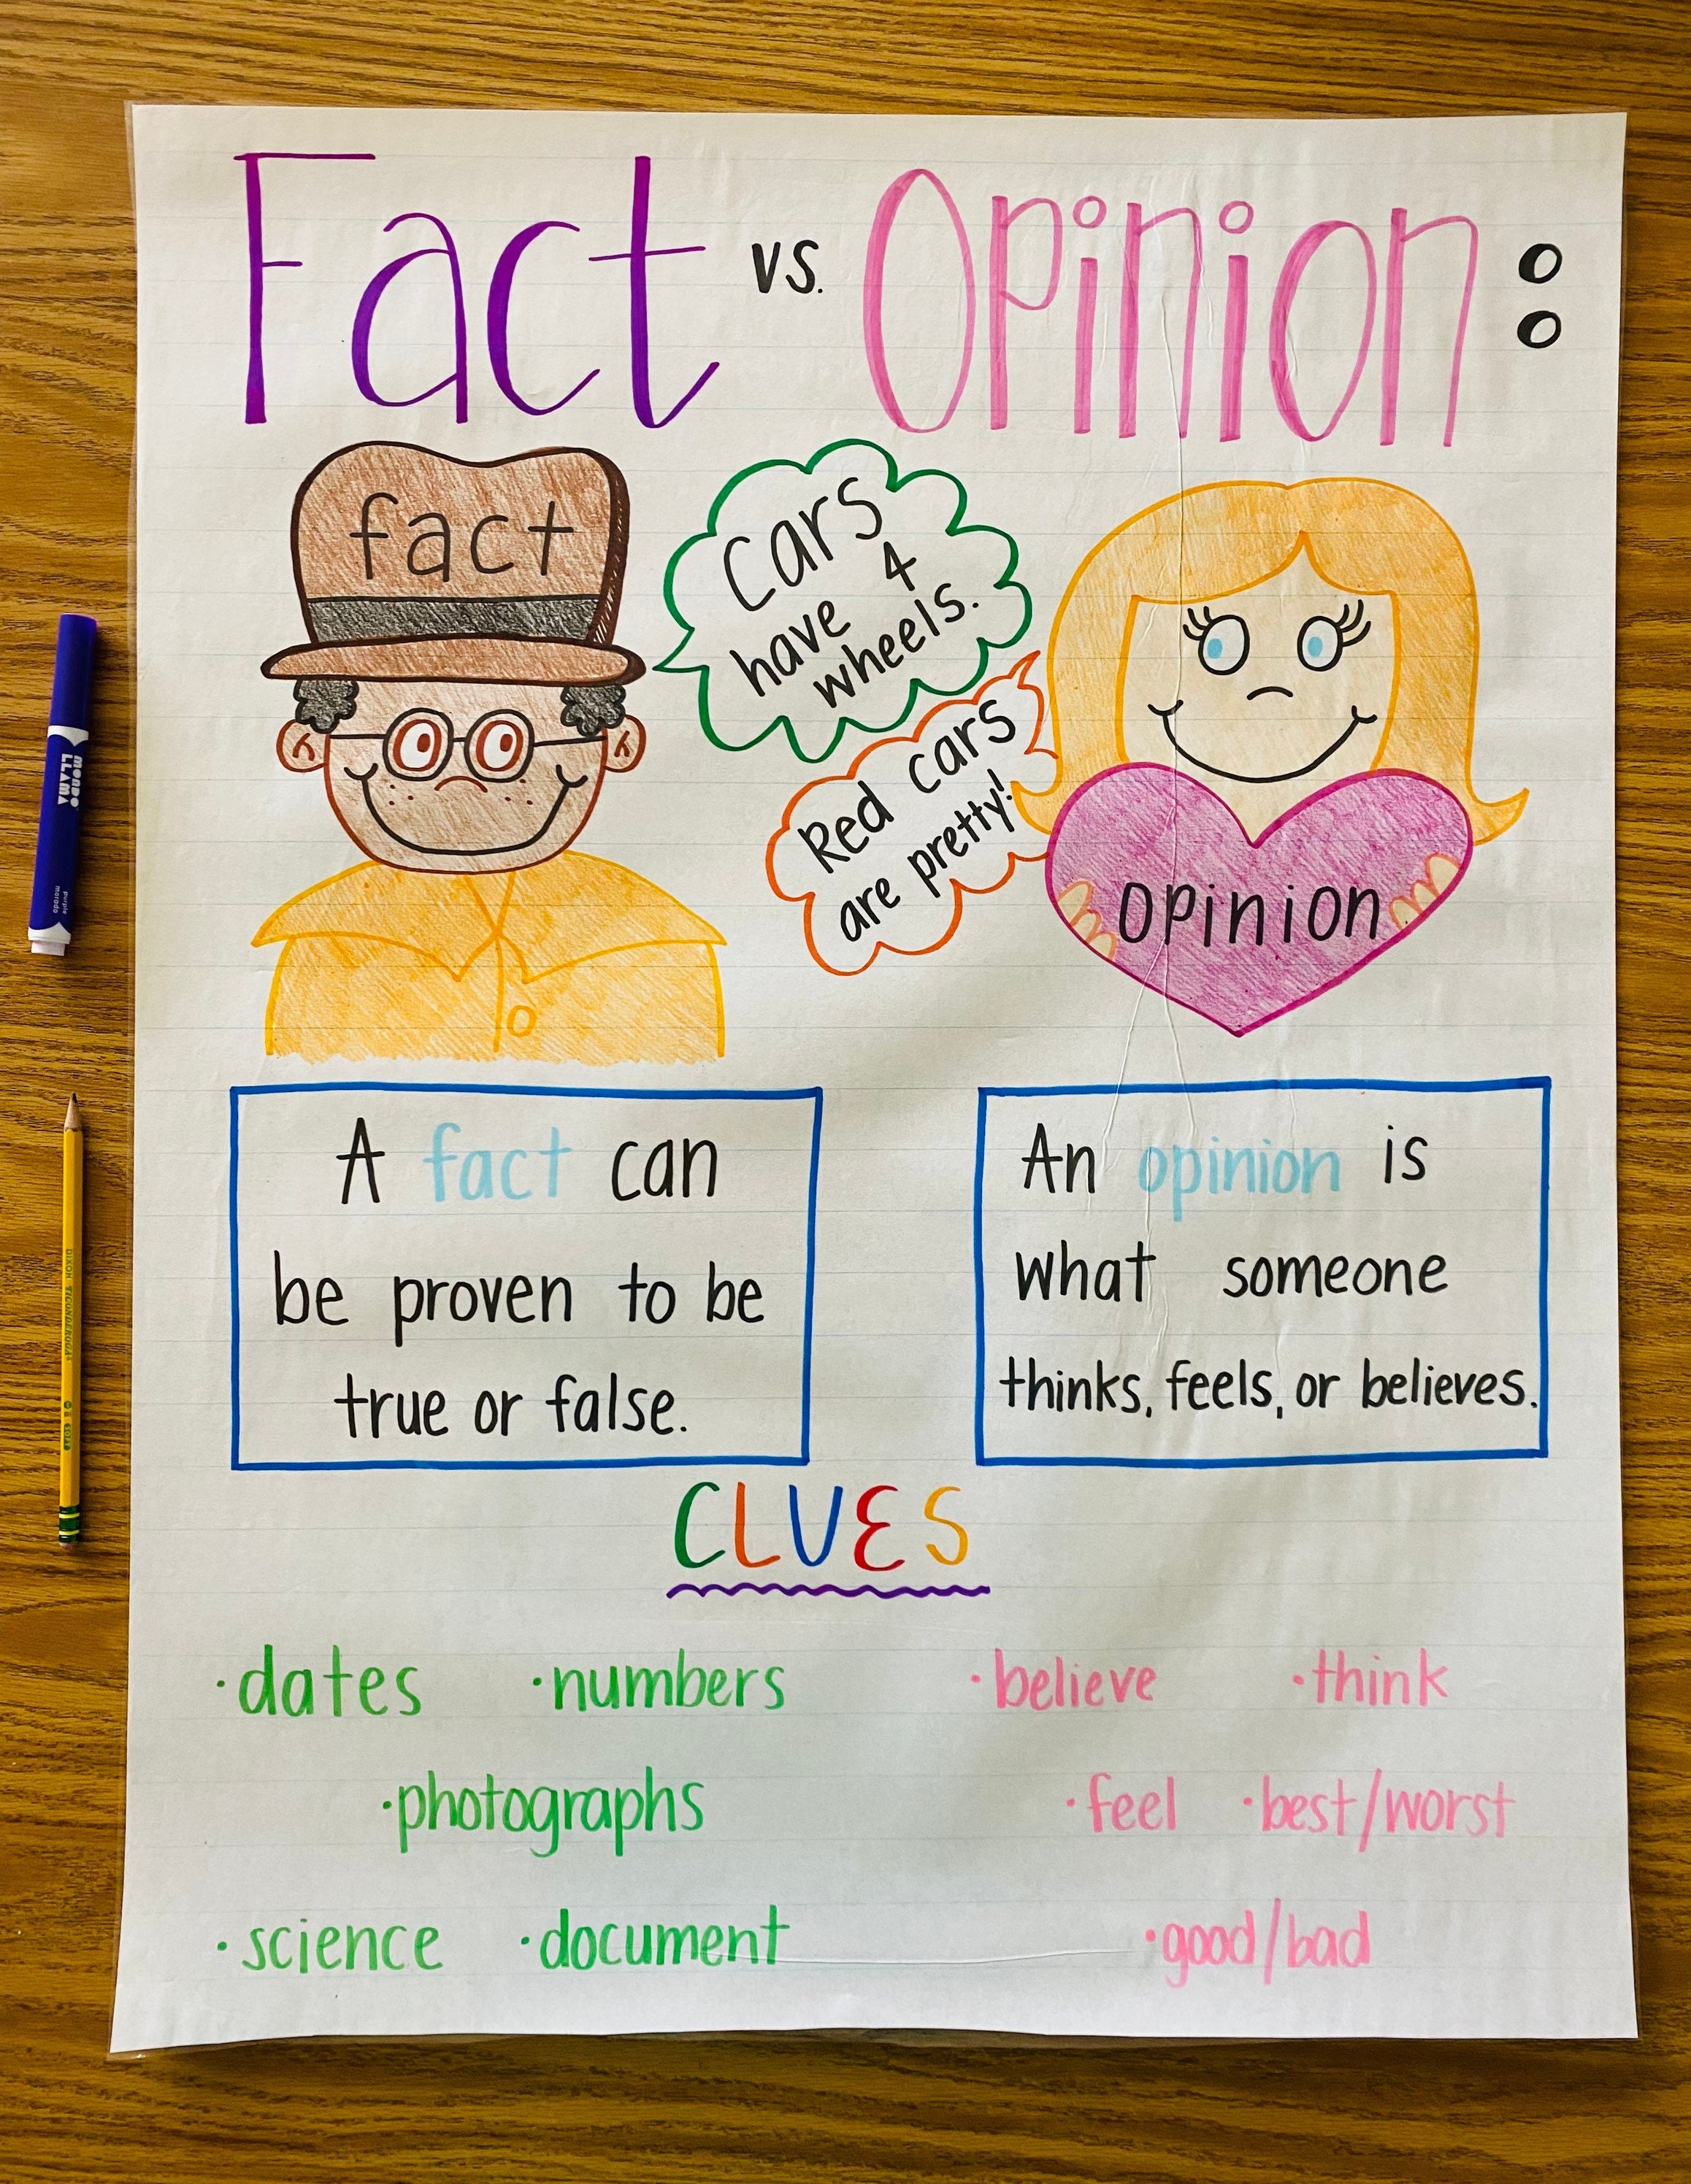 Fact vs. Opinion:
fact
Cars
have 4
wheels.
Red cars
are pretty!
opinion
A fact can
be proven to be
true or false.
An opinion is
what someone
thinks, feels, or believes.
CLUES
·dates ·numbers
·photographs
·science ·document
·believe ·think
·feel ·best/worst
·good/bad
mondo
LLAMA
purple
morado
DIXON TICONDEROGA